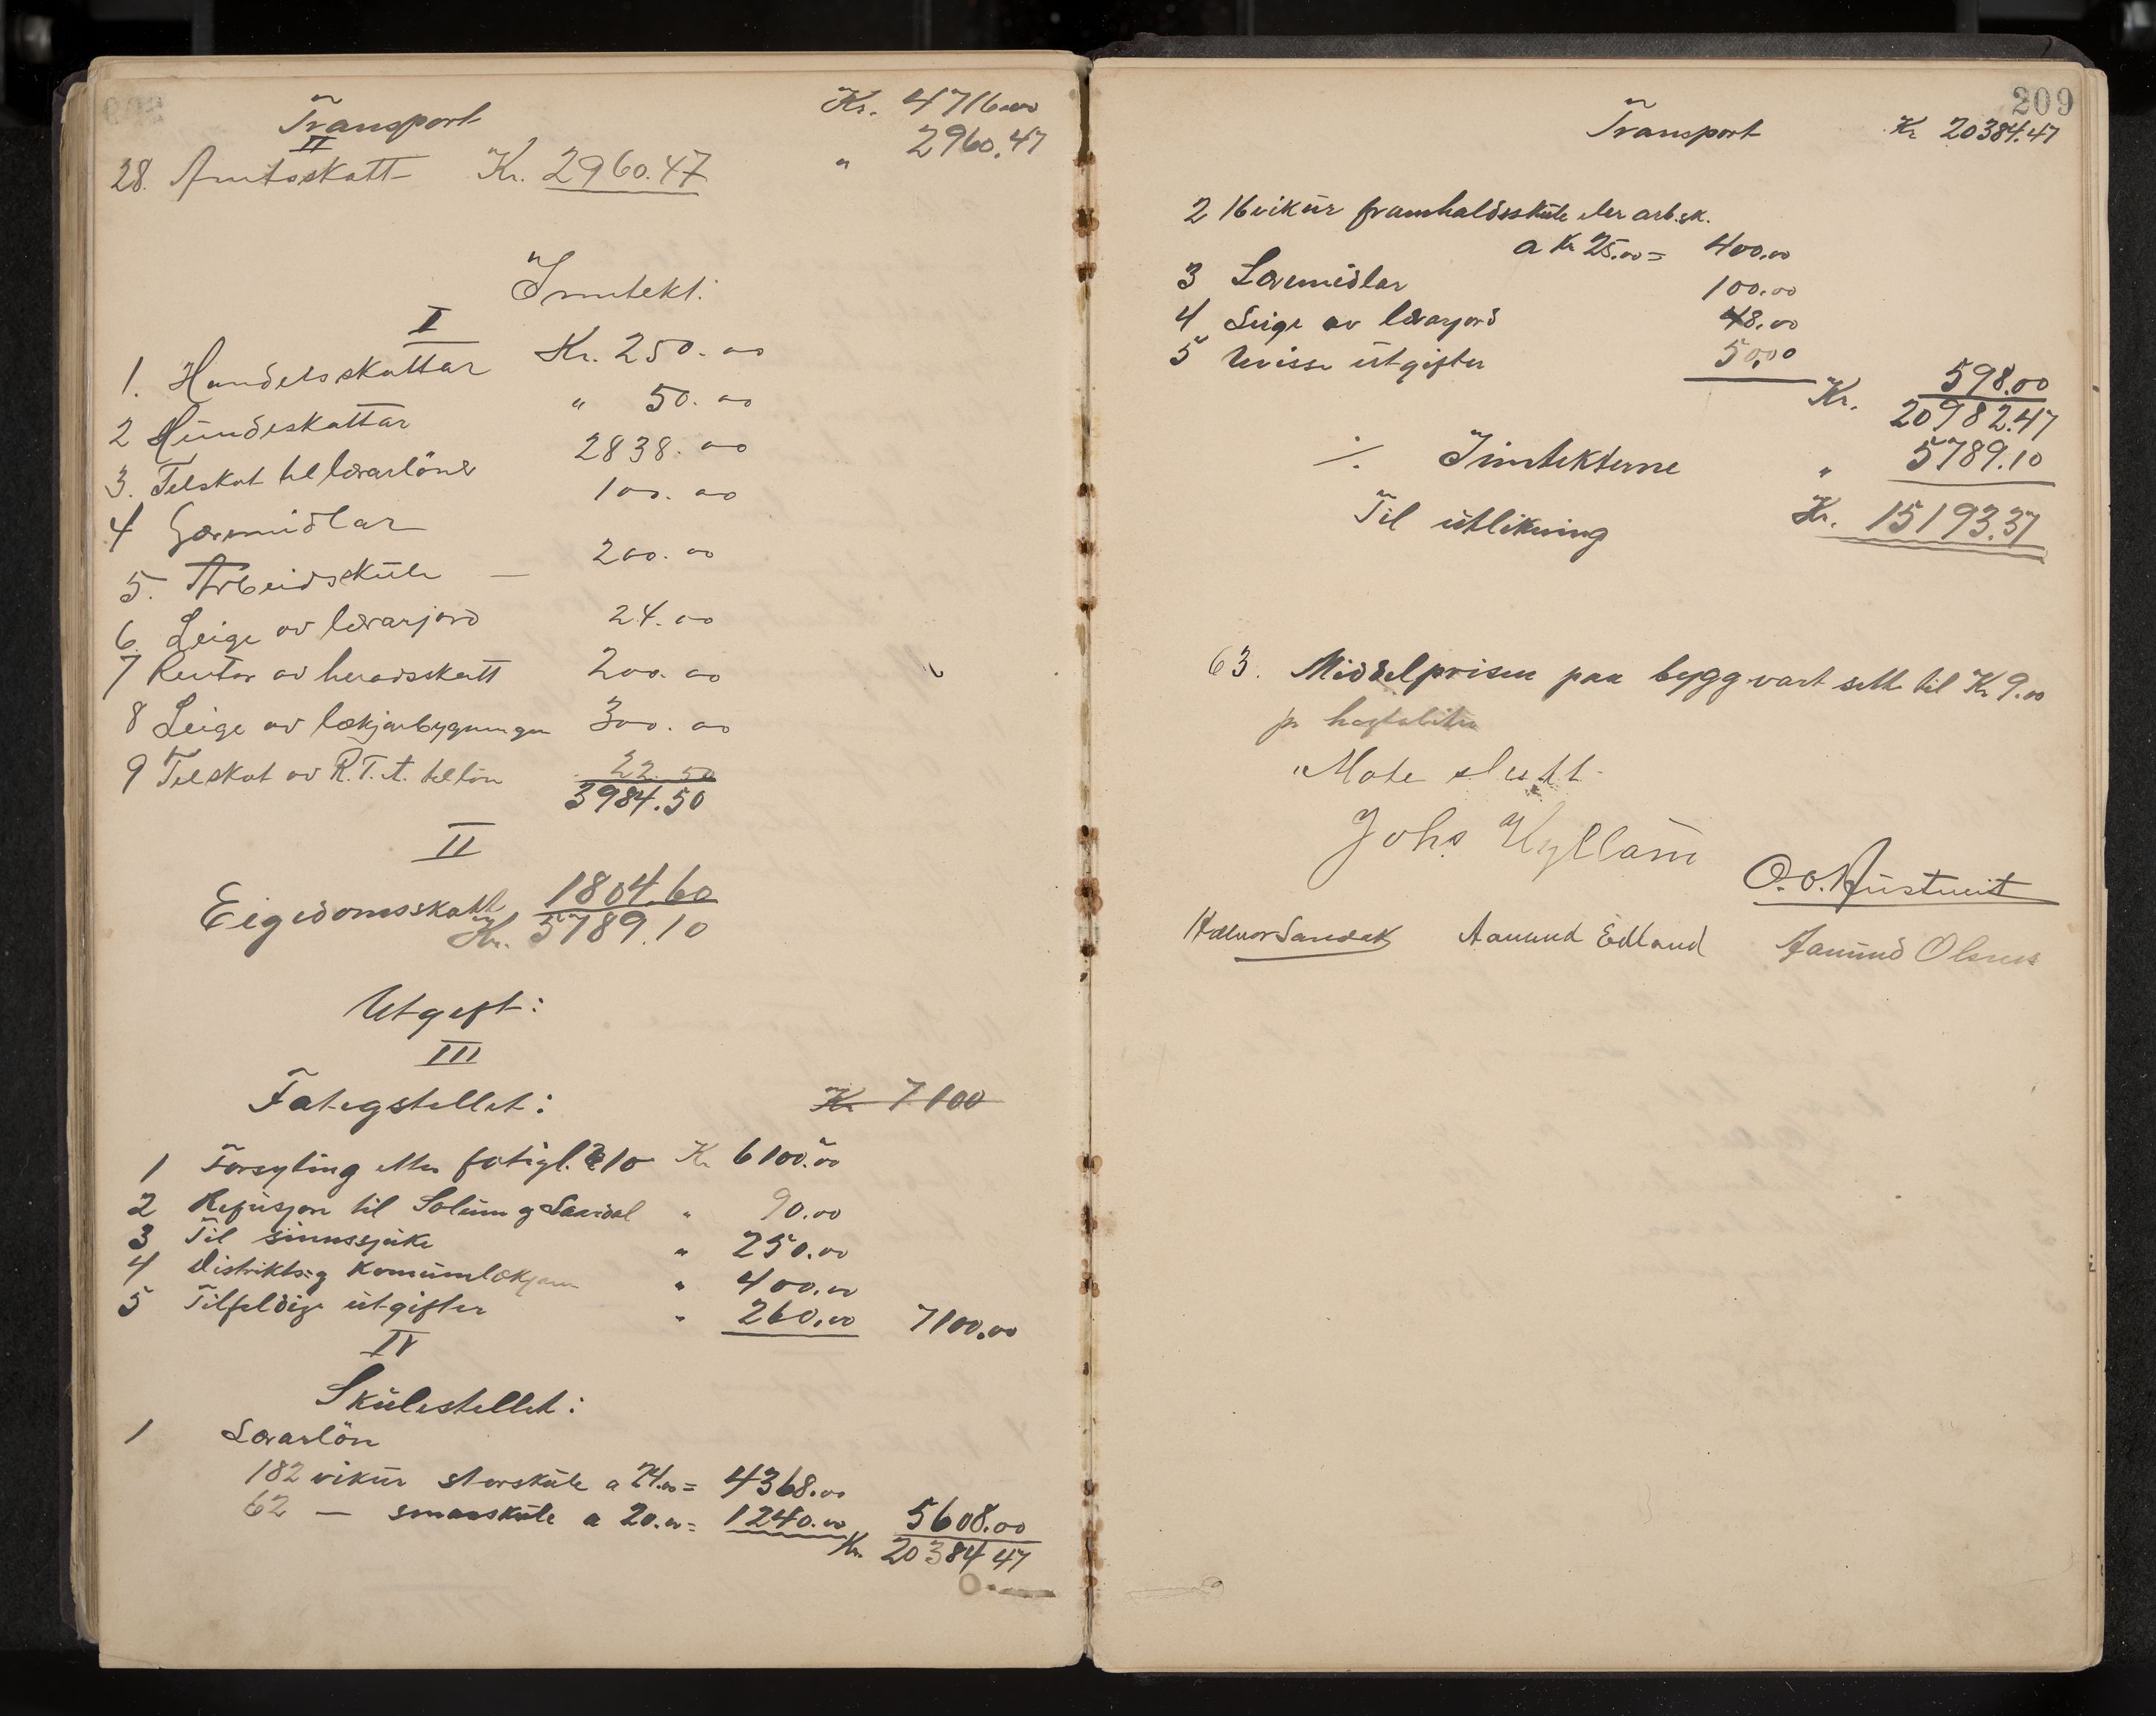 Transport Kr. 4716.00
II
28. Amtsskatt Kr. 2960.47 " 2960.47
Inntekt:
I
1. Handelsskattar Kr. 250.00
2 Hundeskattar " 50.00
3. Tilskot til lærarlöner 2838.00
4 Læremidlar 100.00
5. Arbeidsskule — 200.00
6 Leige av lærarjord 24.00
7 Rentor av heradsskatt 200.00
8 Leige av lækjarbygningen 300.00
9 Tilskot av R.T.A. til lön 22.50
3984.50
II
Eigedomsskatt 1804.60
Kr. 5789.10
Utgift:
III
Fatigstellet: Kr 7100
1 Forsyting etter fatigl. § 10 Kr 6100.00
2 Refusjon til Solum og Sauidal " 90.00
3 Til sinnssjuke " 250.00
4 Distrikts- og komunelækjaren " 400.00
5 Tilfeldige utgifter " 260.00 7100.00
IV
Skulestellet:
1 Lærarlön
182 vikur storskule a 24.00 = 4368.00
62 — smaaskule a 20.00 = 1240.00 5608.00
Kr. 20384 47
209
Transport Kr 20384.47
2 16 vikur framhaldsskule eler arb.sk.
a Kr 25.00 = 400.00
3 Læremidlar 100.00
4 Leige av lærarjord 48.00
5 Uvisse utgifter 50.00
598.00
Kr. 20982.47
./. Inntekterne " 5789.10
Til utlikning Kr. 15193.37
63. Middelprisen paa bygg vart sett til Kr 9.00
pr hektoliter
Møte slutt.
Johs Kyllam
O. O. Rustveit
Halvor Sandok Aanund Edland Aanund Olsnes